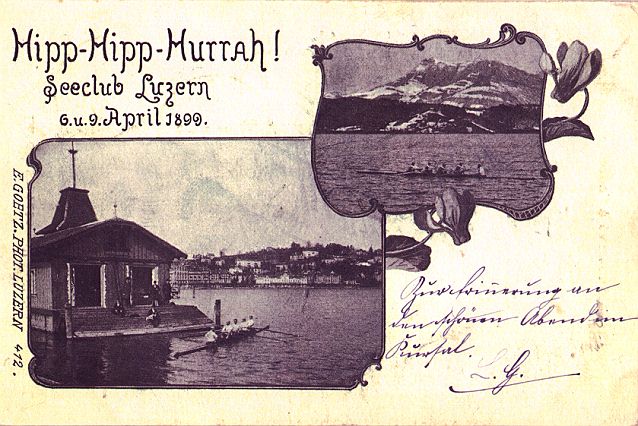 Hipp-Hipp-Hurrah!
Seeclub Luzern
6. u. 9. April 1899.
E. GOETZ. PHOT. LUZERN 412.
Zur Erinnerung an
den schönen Abend im
Kursal.
L. G.